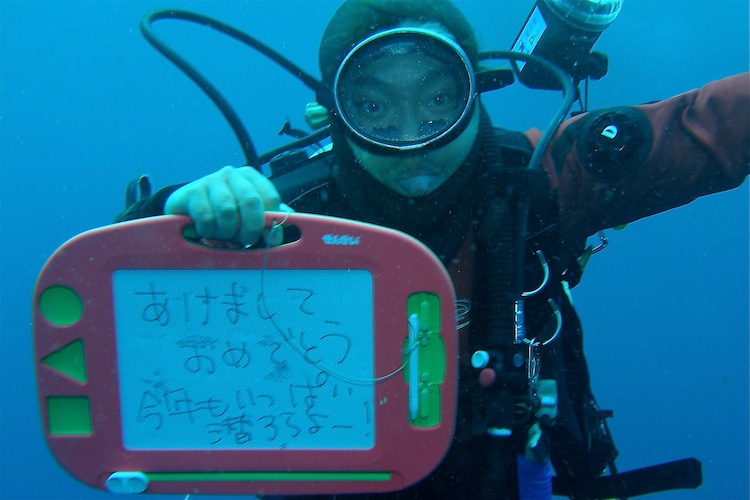 せんせい
あけまして
おめでとう
今年もいっぱい
潜ろうよー!